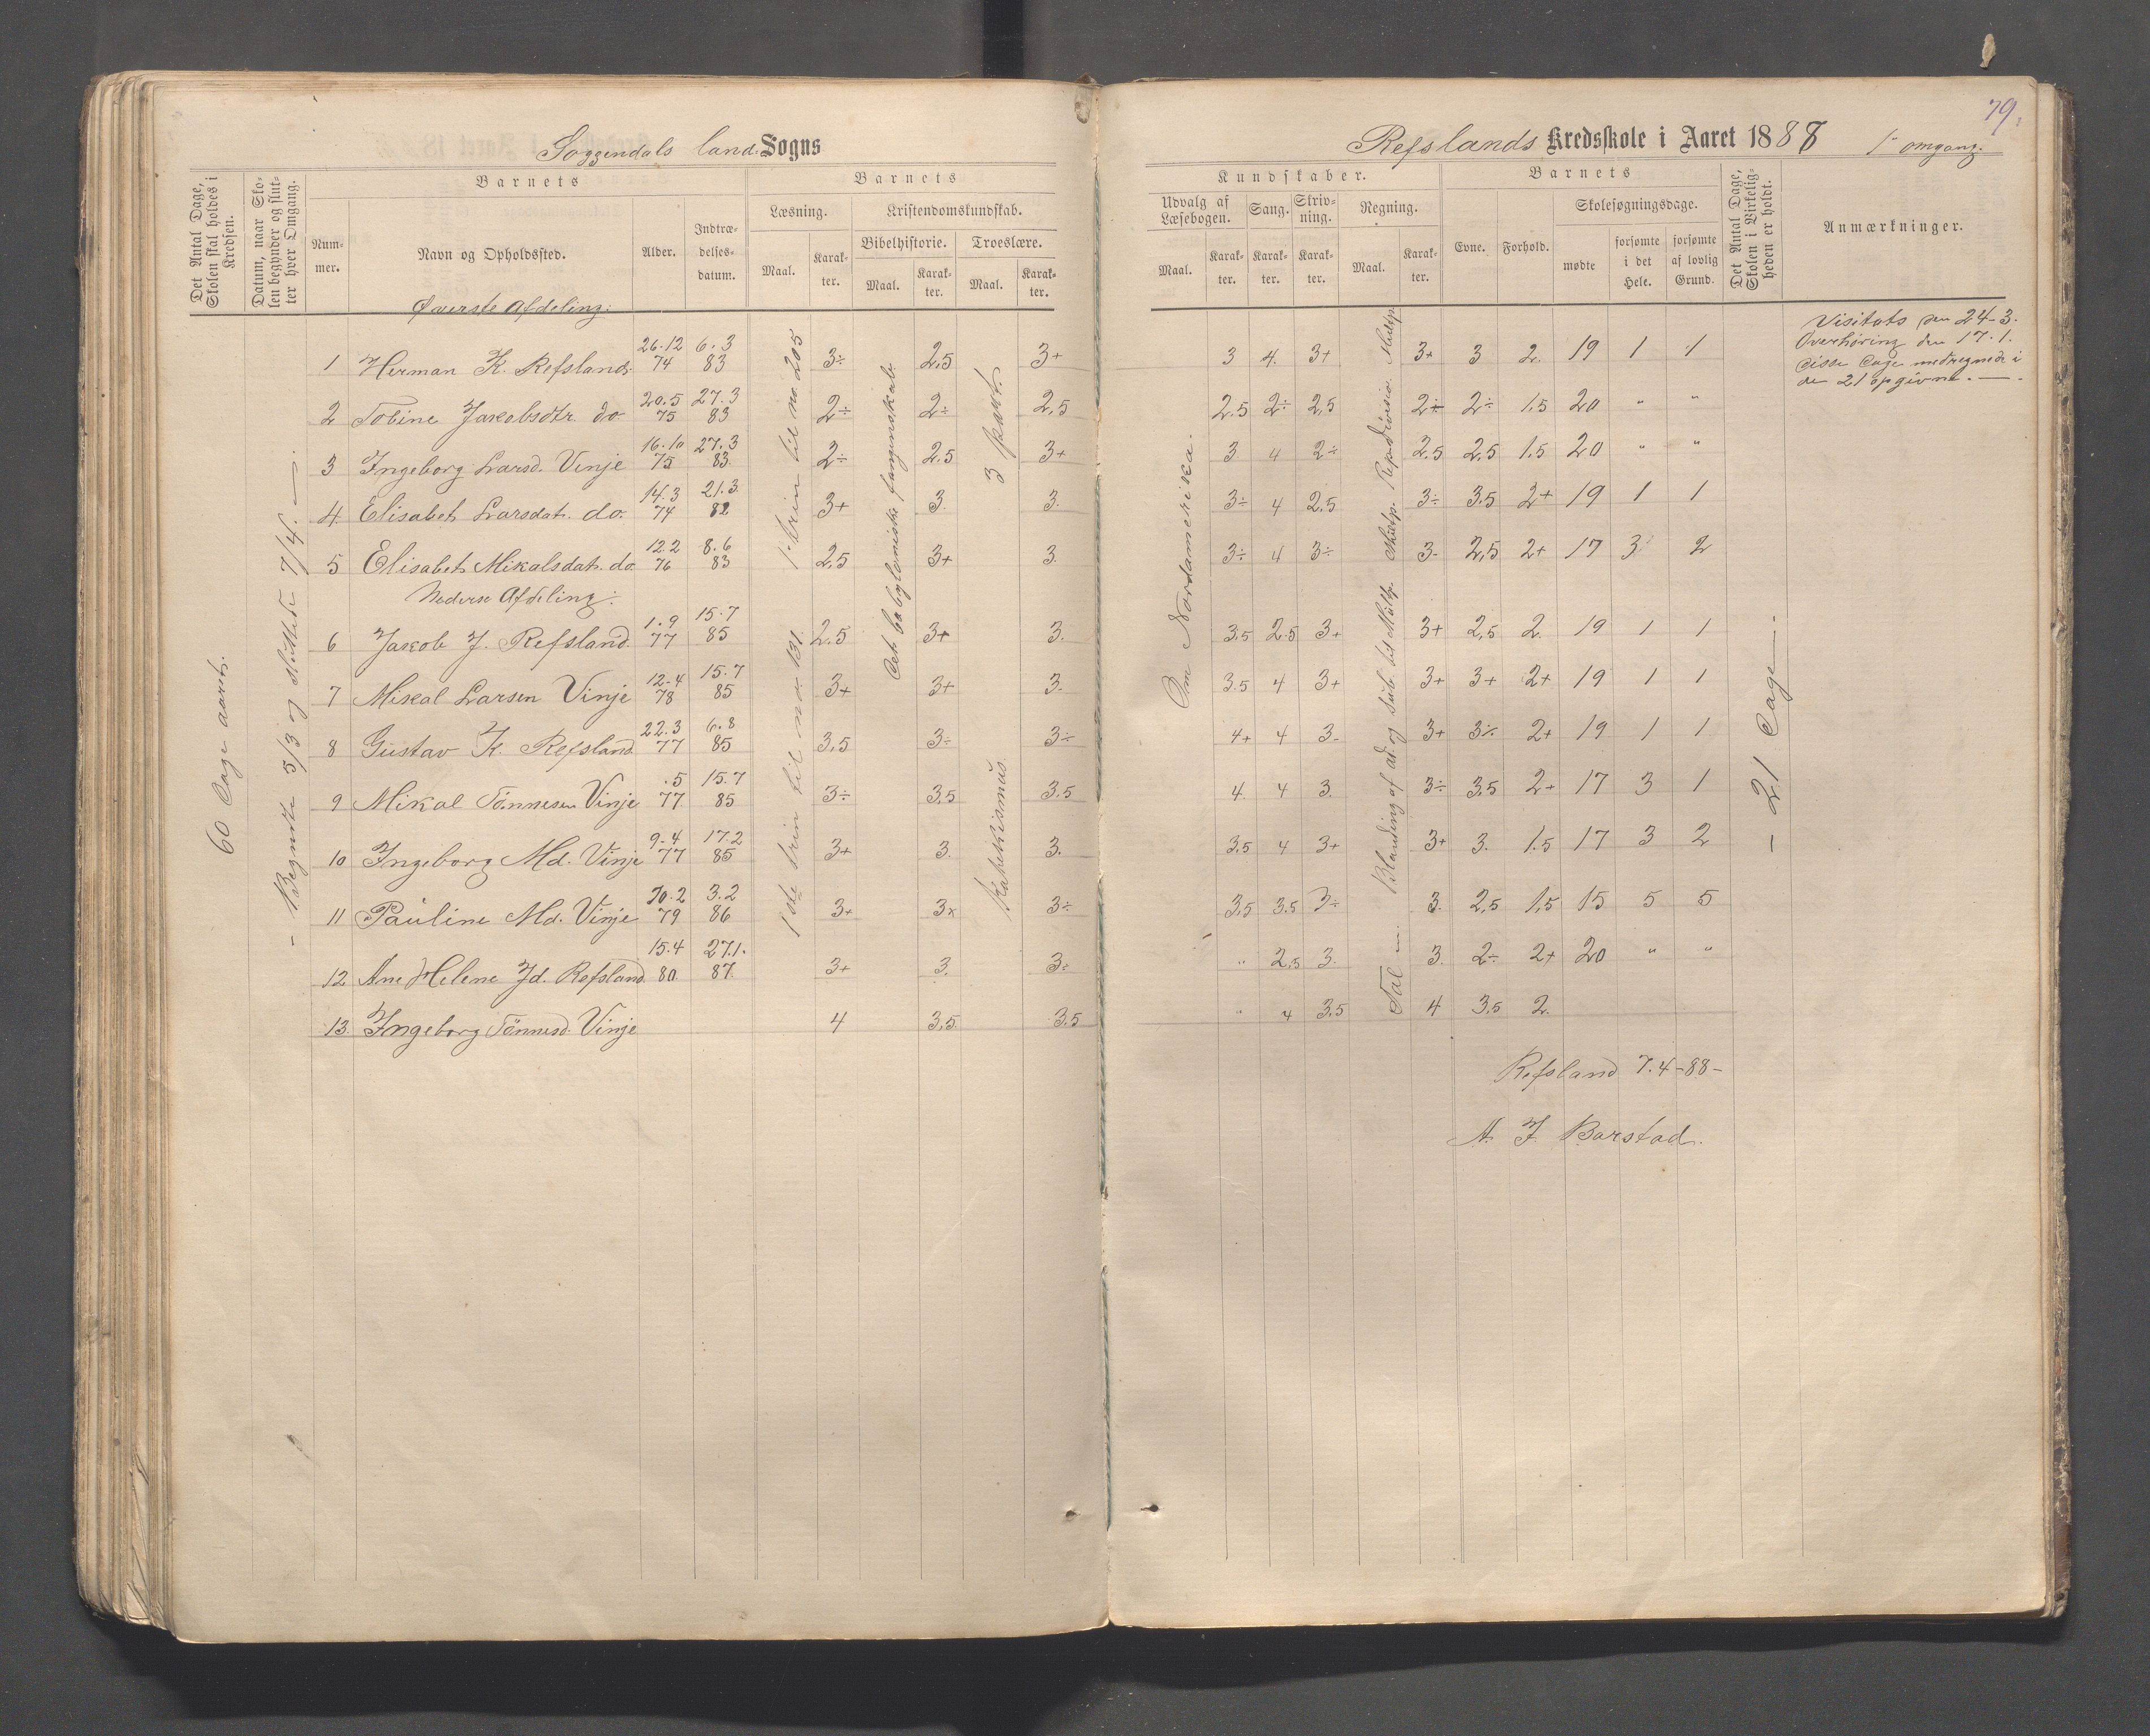 79.
Soggendals land. Sogns
Refslands Kredsskole i Aaret 1888 1ste omgang.
Det Antal Dage, Skolen skal holdes i Kredsen.
Datum, naar Skolen begynder og slutter hver Omgang.
Barnets
Nummer.
Navn og Opholdssted.
Alder.
Indtrædelsesdatum.
Barnets
Læsning.
Maal.
Karakter.
Kristendomskundskab.
Bibelhistorie.
Maal.
Karakter.
Troeslære.
Maal.
Karakter.
Kundskaber.
Udvalg af Læsebogen.
Maal.
Karakter.
Sang.
Karakter.
Skrivning.
Karakter.
Regning.
Maal.
Karakter.
Barnets
Evne.
Forhold.
Skolesøgningsdage.
mødte
forsømte i det Hele.
forsømte af lovlig Grund.
Det Antal Dage, Skolen i Virkeligheden er holdt.
Anmærkninger.
60 Dage aarets.
- Begyndte 5/3 og sluttede 7/4. -
1. trin til no. 205
1ste trin til no. 131.
Det babyloniske fangenskab.
3 part.
Katekismus.
Om Nordamerika.
Blanding af ad. og sub. til Multp.
- 21 Dage -.
Visitats den 24-3.
Overhøring den 17.1.
disse Dage medregnede i
de 21 opgivne. -.
Øverste Afdeling:
1 Herman K. Refsland. 26.12 74 6.3 83 3÷ 2,5 3+ 3 4. 3+ 3+ 3 2. 19 1 1
2 Tobine Jakobsdtr. do. 20.5 75 27.3 83 2÷ 2÷ 2,5 2.5 2÷ 2,5 2÷ 2÷ 1,5 20 " "
3 Ingeborg Larsd. Vinje 16.10 75 27.3 83. 2÷ 2.5 3+ 3 4 2÷ 2.5 2,5 1.5 20 " "
4 Elisabet Larsdat. do. 14.3 74 21.3 82 3+ 3. 3. 3÷ 4 2,5 3÷ 3.5 2+ 19 1 1
5 Elisabet Mikalsdat. do. 12.2 76 8.6 83 2,5 3+ 3. 3÷ 4 3÷ 3. 2,5 2+ 17 3 2
Nederse Afdeling:
6 Jakob J. Refsland. 1.9 77 15.7 85 2.5 3+ 3. 3.5 2.5 3+ 3+ 2,5 2. 19 1 1
7 Mikal Larsen Vinje 12.4 78 15.7 85 3+ 3+ 3. 3.5 4 3+ 3+ 3+ 2+ 19 1 1
8 Gustav K. Refsland. 22.3 77 6.8 85 3,5 3÷ 3÷ 4+ 4 3. 3+ 3÷ 2+ 19 1 1
9 Mikal Tönnesen Vinje .5 77 15.7 85 3÷ 3,5 3.5 4. 4 3. 3÷ 3,5 2+ 17 3 1
10 Ingeborg Md. Vinje 9.4 77 17.2 85 3+ 3. 3. 3,5 4 3+ 3+ 3. 1.5 17 3 2
11 Pauline Md. Vinje 10.2 79 3.2 86 3+ 3x 3÷ 3,5 3.5 3÷ 3. 2,5 1,5 15 5 5
12 Ane Helene Jd. Refsland. 15.4 80 27.1. 87. 3+ 3. 3÷ " 2,5 3. 3. 2÷ 2+ 20 " "
13. Ingeborg Tönnesd. Vinje 4 3,5. 3.5 " 4 3,5 4 3,5 2.
Refsland 7.4-88-
A. J. Barstad.